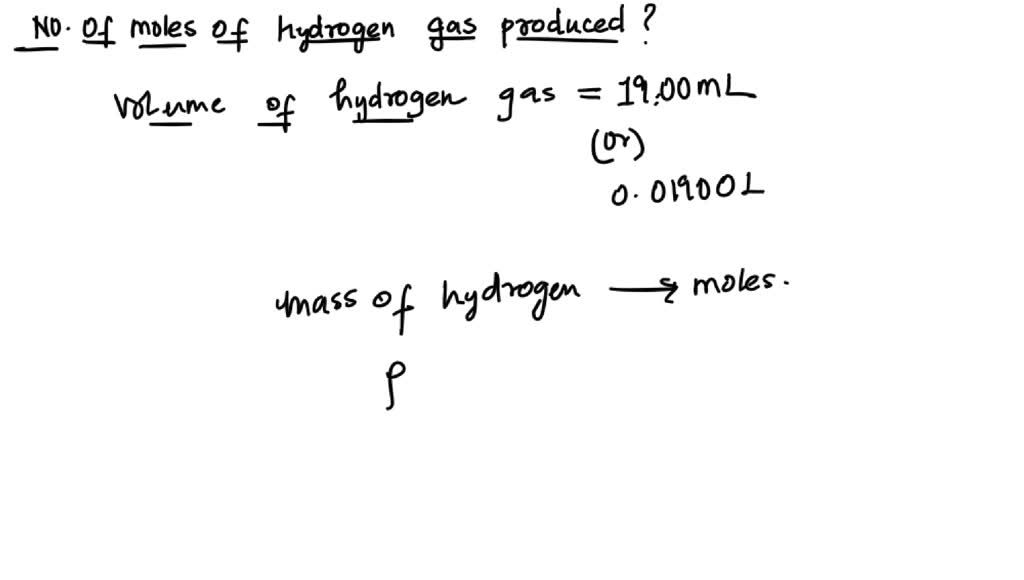 NO. Of moles of hydrogen gas produced?
Volume of hydrogen gas = 19.00mL
(or)
0.01900L
mass of hydrogen → moles.
ρ